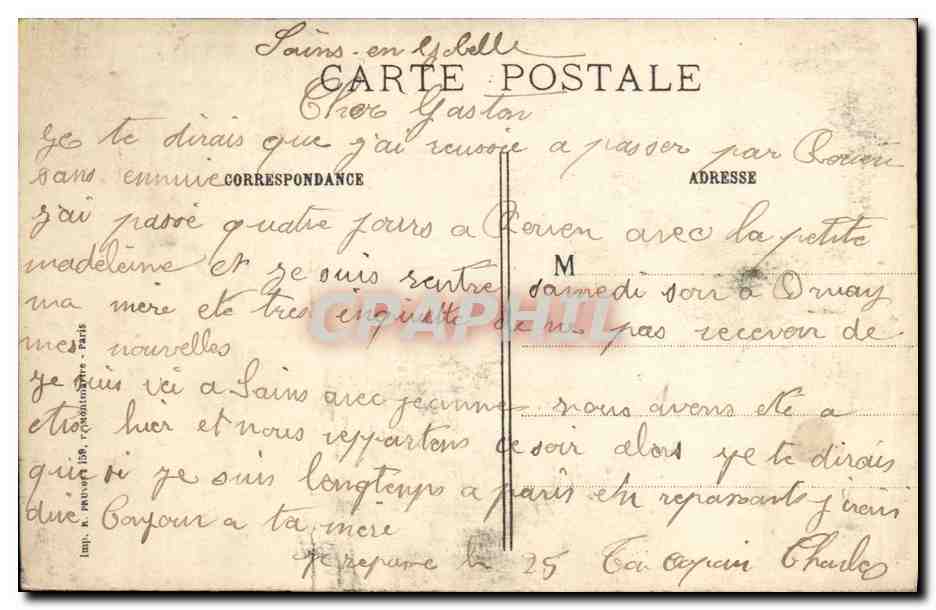 Sains-en-
CARTE POSTALE
Cher Gaston
je te dirais que j'ai reussie a passer par Rouen
sans ennuie
CORRESPONDANCE
ADRESSE
j'ai passé quatre jours a Rouen avec la petite
madeleine et je suis rentré samedi soir a Orvay
M
ma mère ete tres inquiette de ne pas recevoir de
mes nouvelles
je suis ici a Sains avec jeanne nous avens eté a
hier et nous reppartons ce soir alors je te dirais
que si je suis longtemps a paris en repassants j'irais
dire Bonjour a ta mère
je repare le 25 Ton copain Charles
Imp. E. PRUVOST 159, r. Montmartre - Paris
CRAPHIL